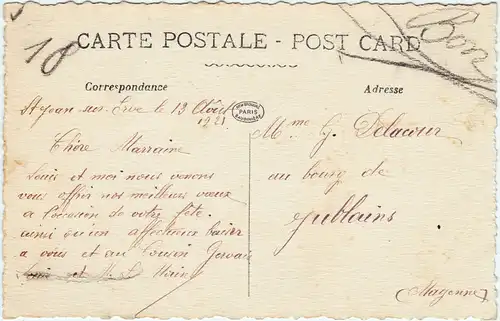 18
Bon
CARTE POSTALE - POST CARD
Correspondance
Adresse
St Jean-sur-Erve le 13 Août
1921
Chère Marraine
Louis et moi nous venons
vous offrir nos meilleurs vœux
a l'occasion de votre fête.
ainsi qu'un affectueux baiser
a vous et au Cousin Gervais
et
PARIS
Mme G. Delacour
au bourg de
Jublains
(Mayenne)